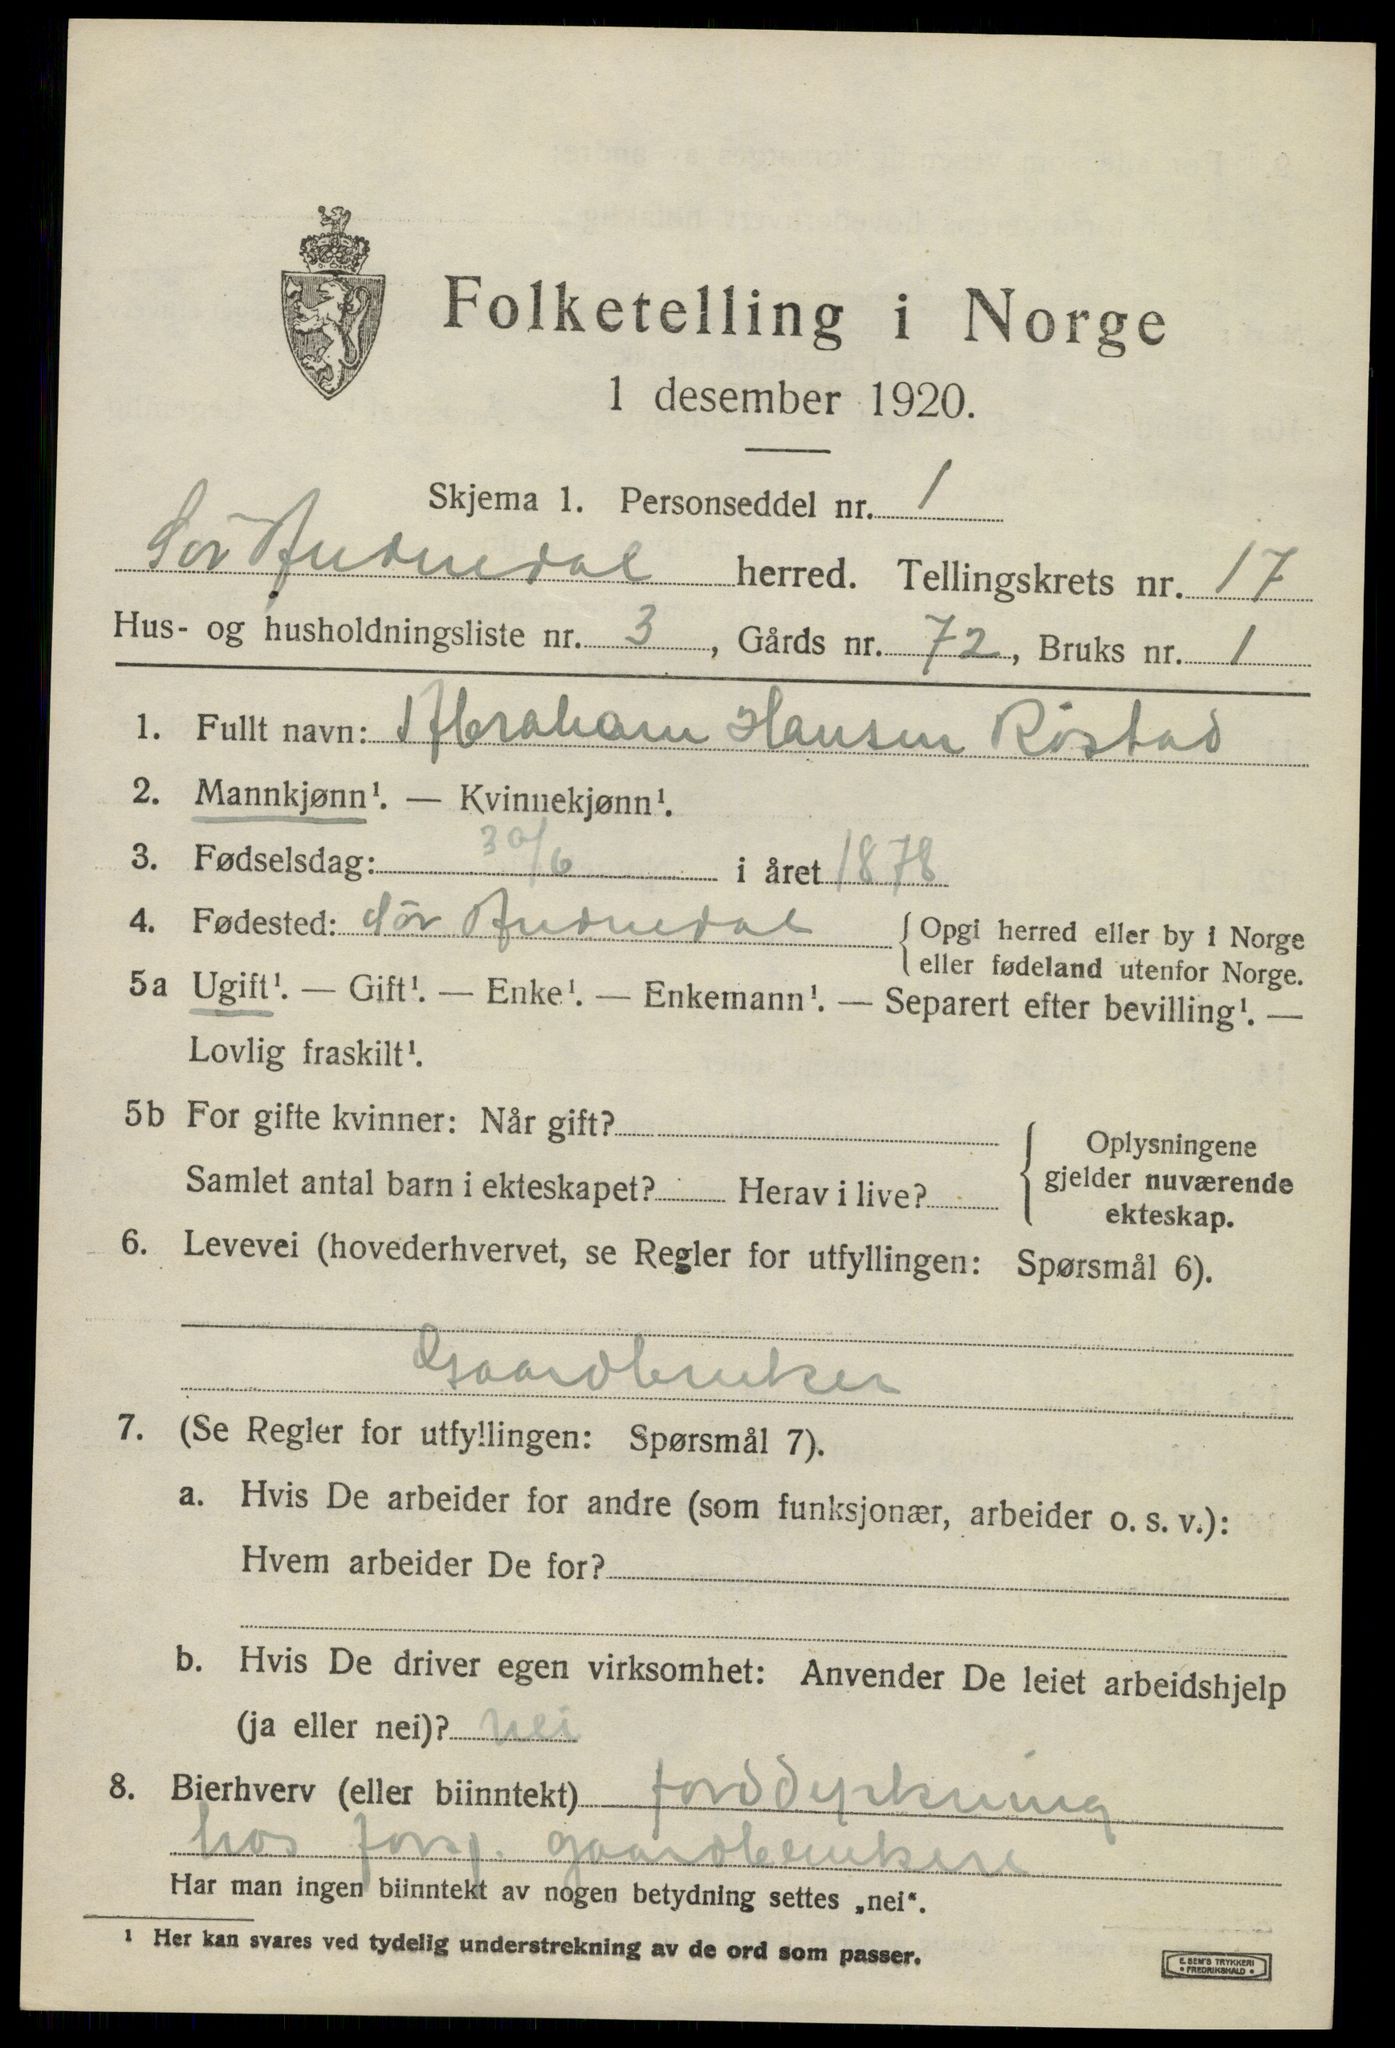 Folketelling i Norge
1 desember 1920.
Skjema 1. Personseddel nr. 1
Sör Audnedal herred. Tellingskrets nr. 17
Hus- og husholdningsliste nr. 3, Gårds nr. 72, Bruks nr. 1
1. Fullt navn: Abraham Hansen Röstad
2. Mannkjønn¹. — Kvinnekjønn¹.
3. Fødselsdag: 30/6 i året 1878
4. Fødested: Sör Audnedal { Opgi herred eller by i Norge
eller fødeland utenfor Norge.
5a Ugift¹. — Gift¹. — Enke¹. — Enkemann¹. — Separert efter bevilling¹. —
Lovlig fraskilt¹.
5b For gifte kvinner: Når gift?
Samlet antal barn i ekteskapet? Herav i live?
{ Oplysningene
gjelder nuværende
ekteskap.
6. Levevei (hovederhvervet, se Regler for utfyllingen: Spørsmål 6).
Gaardbruker
7. (Se Regler for utfyllingen: Spørsmål 7).
a. Hvis De arbeider for andre (som funksjonær, arbeider o. s. v.):
Hvem arbeider De for?
b. Hvis De driver egen virksomhet: Anvender De leiet arbeidshjelp
(ja eller nei)? nei
8. Bierhverv (eller biinntekt) jorddyrkning
hos forsj. gaardbrukere
Har man ingen biinntekt av nogen betydning settes „nei“.
¹ Her kan svares ved tydelig understrekning av de ord som passer.
E. SEM'S TRYKKERI
• FREDRIKSHALD •